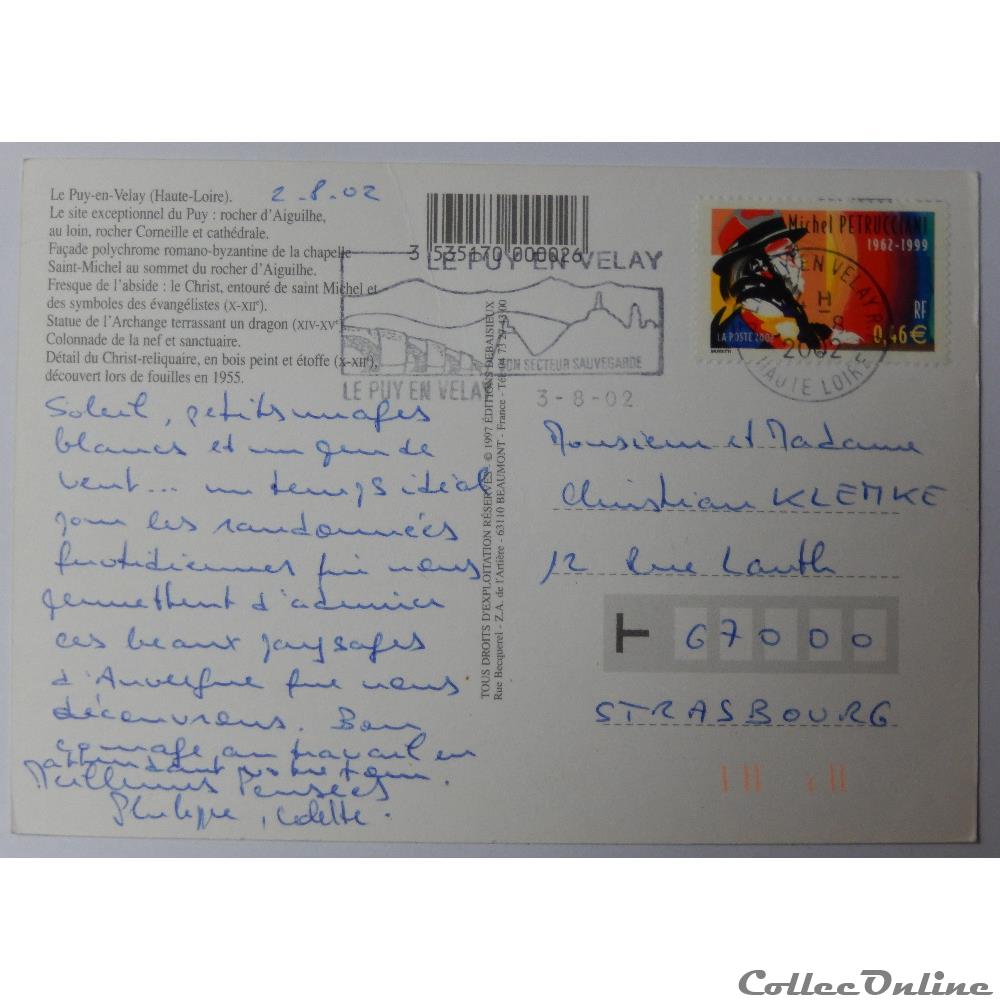 Le Puy-en-Velay (Haute-Loire).
2-8-02
Le site exceptionnel du Puy : rocher d'Aiguilhe,
au loin, rocher Corneille et cathédrale.
Façade polychrome romano-byzantine de la chapelle
Saint-Michel au sommet du rocher d'Aiguilhe.
Fresque de l'abside : le Christ, entouré de saint Michel et
des symboles des évangélistes (X-XIIᵉ).
Statue de l'Archange terrassant un dragon (XIV-XVᵉ
Colonnade de la nef et sanctuaire.
Détail du Christ-reliquaire, en bois peint et étoffe (X-XIIᵉ),
découvert lors de fouilles en 1955.
Soleil, petits nuages
blancs et un peu de
vent... un temps idéal
pour les randonnées
quotidiennes qui nous
permettent d'admirer
ces beaux paysages
d'Auvergne que nous
découvrons. Bon
courage au travail en
attendant votre tour.
Meilleures Pensées
Philippe, Odette.
3 535170 000026
LE PUY EN VELAY
SON SECTEUR SAUVEGARDE
LE PUY EN VELAY
3-8-02
TOUS DROITS D'EXPLOITATION RÉSERVÉS © 1997 ÉDITIONS DEBAISIEUX
Rue Becquerel - Z.A. de l'Artière - 63110 BEAUMONT - France - Tél. 04 73 27 43 00
Michel PETRUCCIANI
1962-1999
RF
0,46€
LA POSTE 2002
EN VELAY
H
8
2002
HAUTE LOIRE
Monsieur et Madame
Christian KLEMKE
12 Rue Lauth
T 67000
STRASBOURG
CollecOnline